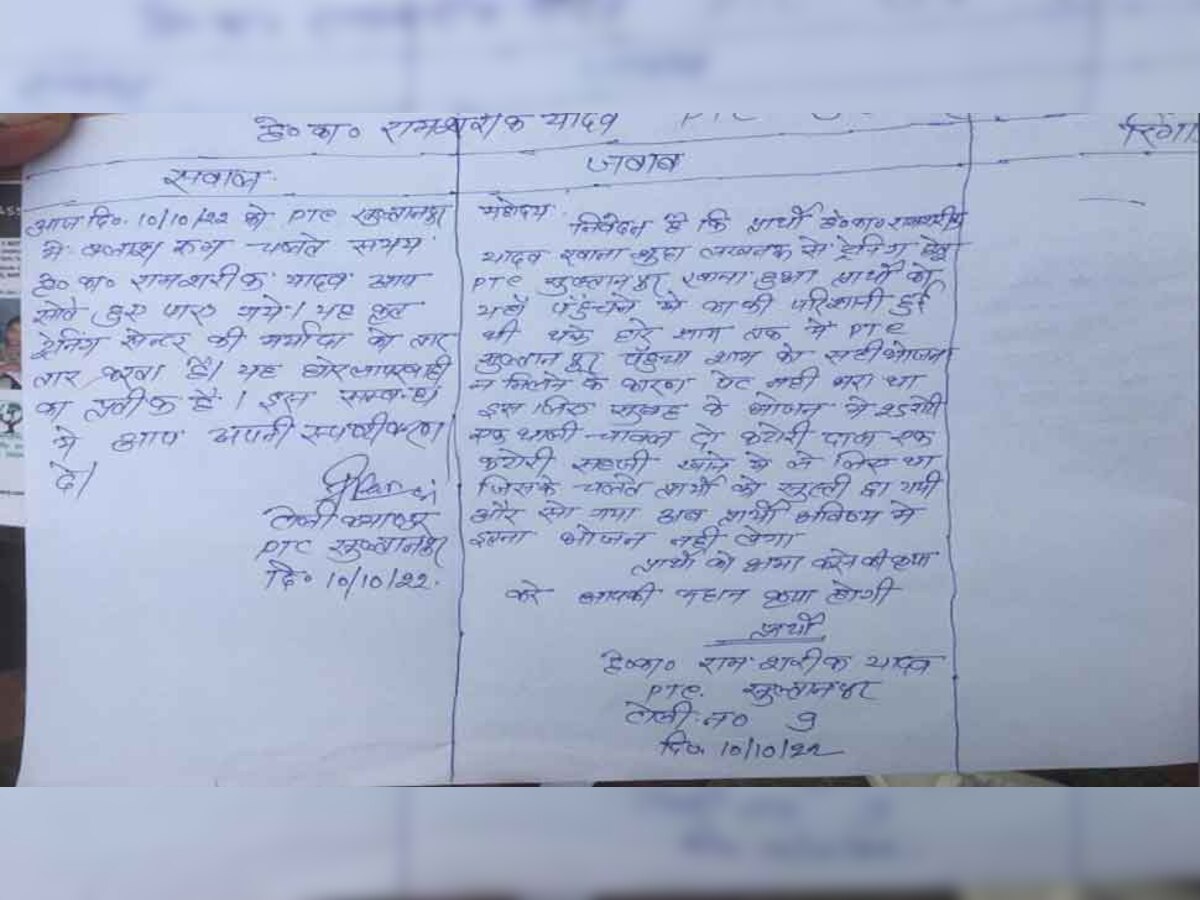 हे०का० रामशरीक यादव PTC
सवाल
आज दि० 10/10/22 को PTC सुल्तानपुर
मे क्लास रूम चलते समय
हे० का० रामशरीक यादव आप
सोते हुए पाए गये। यह कृत
ट्रेनिंग सेन्टर की मर्यादा को तार
तार करता है। यह घोर लापरवाही
का प्रतीक है। इस सम्बन्ध
मे आप अपनी स्पष्टीकरण
दे।
टोली कमाण्डर
PTC सुल्तानपुर
दि० 10/10/22.
जवाब
महोदय
निवेदन है कि प्रार्थी हे०का० रामशरीक
यादव लखनऊ से ट्रेनिंग हेतु
PTC सुल्तानपुर रवाना हुआ प्रार्थी को
यहाँ पहुंचने मे काफी परिशानी हुई
थी थके हारे शाम तक मे PTC
सुल्तानपुर पहुंचा शाम को सही भोजन
न मिलने के कारण पेट नही भरा था
इस लिए सुबह के भोजन मे 25 रोटी
एक थाली चावल दो कटोरी दाल एक
कटोरी सब्जी खाने मे ले लिए था
जिसके चलते प्रार्थी को सुस्ती छा गयी
और सो गया अब प्रार्थी भविष्य मे
इतना भोजन नही लेगा
प्रार्थी को क्षमा करने की कृपा
करे आपकी महान कृपा होगी
प्रार्थी
हे०का० राम शरीक यादव
PTC. सुल्तानपुर
टोली न० 9
दि० 10/10/22